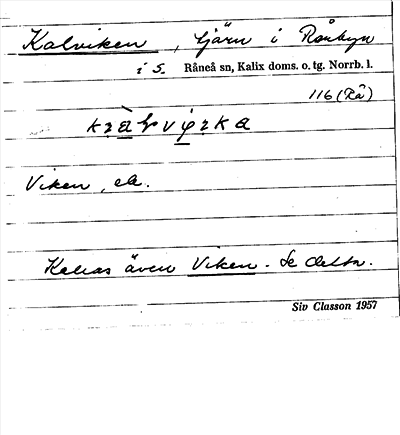 Kalviken, tjärn i Rånbyn
i S. Råneå sn, Kalix doms. o. tg. Norrb. l.
116 (Rå)
Viken, ek.
Kallas även Viken. Se detta.
Siv Classon 1957